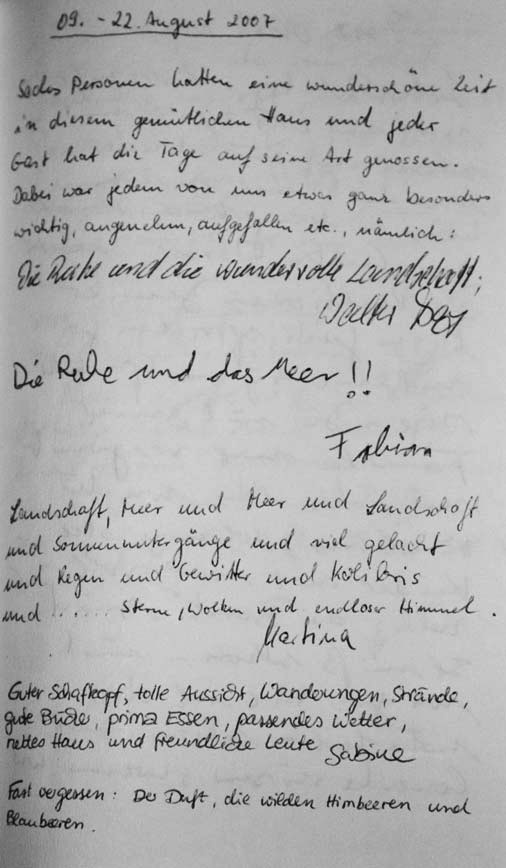 09. - 22. August 2007
Sechs Personen hatten eine wunderschöne Zeit
in diesem gemütlichen Haus und jeder
Gast hat die Tage auf seine Art genossen.
Dabei war jedem von uns etwas ganz besonders
wichtig, angenehm, aufgefallen etc., nämlich:
Die Ruhe und die wundervolle Landschaft;
Walter
Die Ruhe und das Meer!!
Fabian
Landschaft, Meer und Meer und Landschaft
und Sonnenuntergänge und viel gelacht
und Regen und Gewitter und Kolibris
und ...... Sterne, Wolken und endloser Himmel.
Martina
Guter Schafkopf, tolle Aussicht, Wanderungen, Strände,
gute Bücher, prima Essen, passendes Wetter,
nettes Haus und freundliche Leute Sabine
Fast vergessen: Der Duft, die wilden Himbeeren und
Blaubeeren.